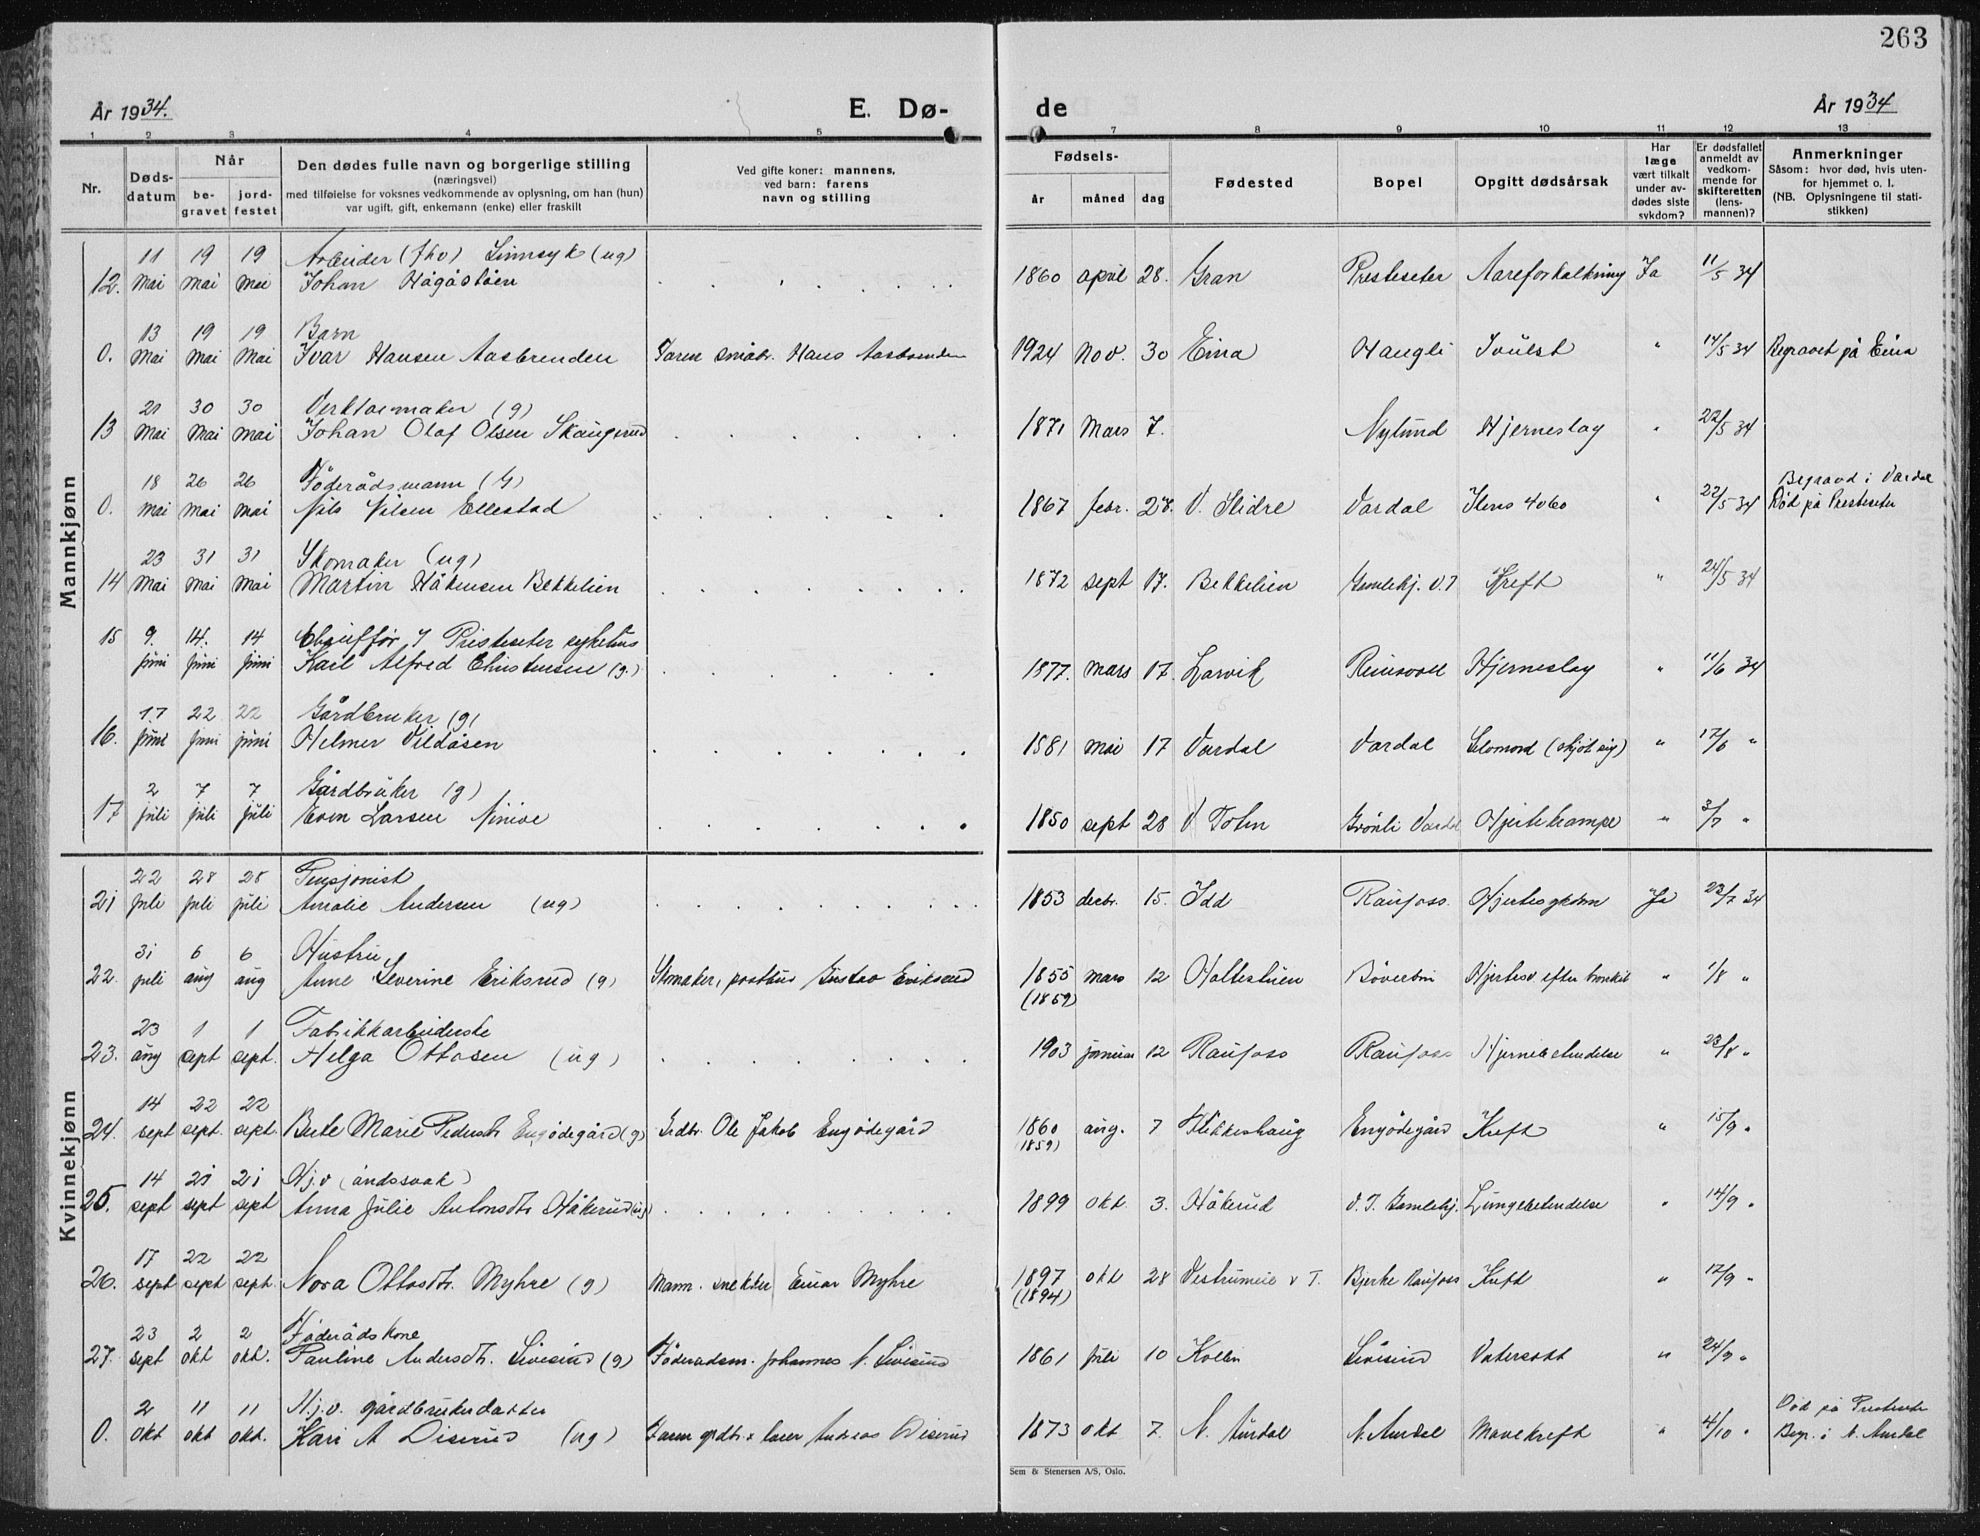 263
År 1934. E. Dø- de År 1934
1 2 3 4 5 7 8 9 10 11 12 13
Nr. Dødsdatum Når begravet jordfestet
Den dødes fulle navn og borgerlige stilling
(næringsvei)
med tilføielse for voksnes vedkommende av oplysning, om han (hun)
var ugift, gift, enkemann (enke) eller fraskilt
Ved gifte koner: mannens,
ved barn: farens
navn og stilling
Fødsels- år måned dag
Fødested
Bopel
Opgitt dødsårsak
Har læge vært tilkalt under avdødes siste sykdom?
Er dødsfallet anmeldt av vedkommende for skifteretten (lensmannen)?
Anmerkninger
Såsom: hvor død, hvis utenfor hjemmet o. l.
(NB. Oplysningene til statistikken)
Mannkjønn
11 19 19 Arbeider (fhv) Sinnsyk (ug)
12. Mai mai mai Johan Hågåstøen 1860 april 28. Gran Presteseter Aareforkalkning Ja 11/5 34
13 19 19 Barn
0. Mai Mai Mai Ivar Hansen Aasbrenden Faren småbr. Hans Aasbrenden 1924 Nov. 30 Eina Haugli " 14/5 34 Begravet på Eina
21 30 30 Verktøimaker (g)
13 Mai Mai mai Johan Olaf Olsen Skaugrud 1871 Mars 7. Nylund Hjerneslag " 22/5 34
18 26 26 Föderådsmann (g) Begravd i Vardal
0. mai mai mai Nils Nilsen Ellestad 1867 febr. 28. V. Slidre Vardal " 22/5 34 Död på Presteseter
23 31 31 Skomaker (ug)
14 Mai mai mai Martin Håkensen Bekkelien 1872 sept 17. Bekkelien Gamlehj. V.T Kreft " 24/5 34
15 9. 14. 14 Chauffør Presteseter sykehus
juni juni juni Karl Alfred Christensen (g.) 1877. mars 17. Larvik Hjerneslag " 11/6 34
17 22 22 Gårdbruker (g)
16. juni juni juni Helmer Vildåsen 1881 mai 17 Vardal Vardal Selvmord (skjöt sig) " 17/6 "
2 7 7 Gårdbruker (g)
17 juli juli juli Even Larsen Ninive 1850 sept 28 V Toten Grönli Vardal Hjertekrampe " 3/7 "
Kvinnekjønn
22 28 28 Pensjonist
21 juli juli juli Amalie Andersen (ug) 1853 decbr. 15. Idd Raufoss. Hjertesykdom Ja 23/7 34
31 6 6 Hustru
22. juli aug aug Anne Severine Eriksrud (g) Skomaker, posthus Gustav Eriksrud 1855 mars 12 Holtestuen Böverbru Hjertesv. efter bronkit " 1/8 "
(1859)
23 1 1 Fabrikkarbeiderske
23. aug sept sept. Helga Ottosen (ug) 1903 januar 12 Raufoss Raufoss Hjernebetendelse " 23/8 "
14 22 22
24. sept sept. sept. Berte Marie Pedersdtr Engödegård (g) Grdbr. Ole Jakob Engödegård 1860 aug. 7 Flikkeshaug Engödegård Kreft " 15/9 "
(1859)
14 21 21 Hj.v (åndssvak)
25. sept sept sept Anna Julie Antonsdtr Håkerud (ug) 1899 okt. 3. Håkerud V. T. Gamlehj. Lungebetendelse " 14/9 "
17 22 22
26. sept sept sept. Nora Ottosdtr. Myhre (g) Mann. snekker Einar Myhre 1897 okt 28 Vestrumeie v T. Bjerke Raufoss Kreft " 17/9 "
(1894)
23 2 2 Föderådskone
27. sept okt okt. Pauline Andersdtr. Sivesind (g) Föderadsm. Johannes A. Sivesind 1861 juli 10 Kollen Sivesind Vatersott " 24/9 "
2 11 11 Hj.v. gårdbrukerdatter Död på Presteseter
0. okt okt okt. Kari A Diserud (ug) Faren grdbr. + lærer Andreas Diserud 1873 okt 7. N. Aurdal N. Aurdal Mavekreft " 4/10 " Begr. i N. Aurdal
Sem & Stenersen A/S, Oslo.